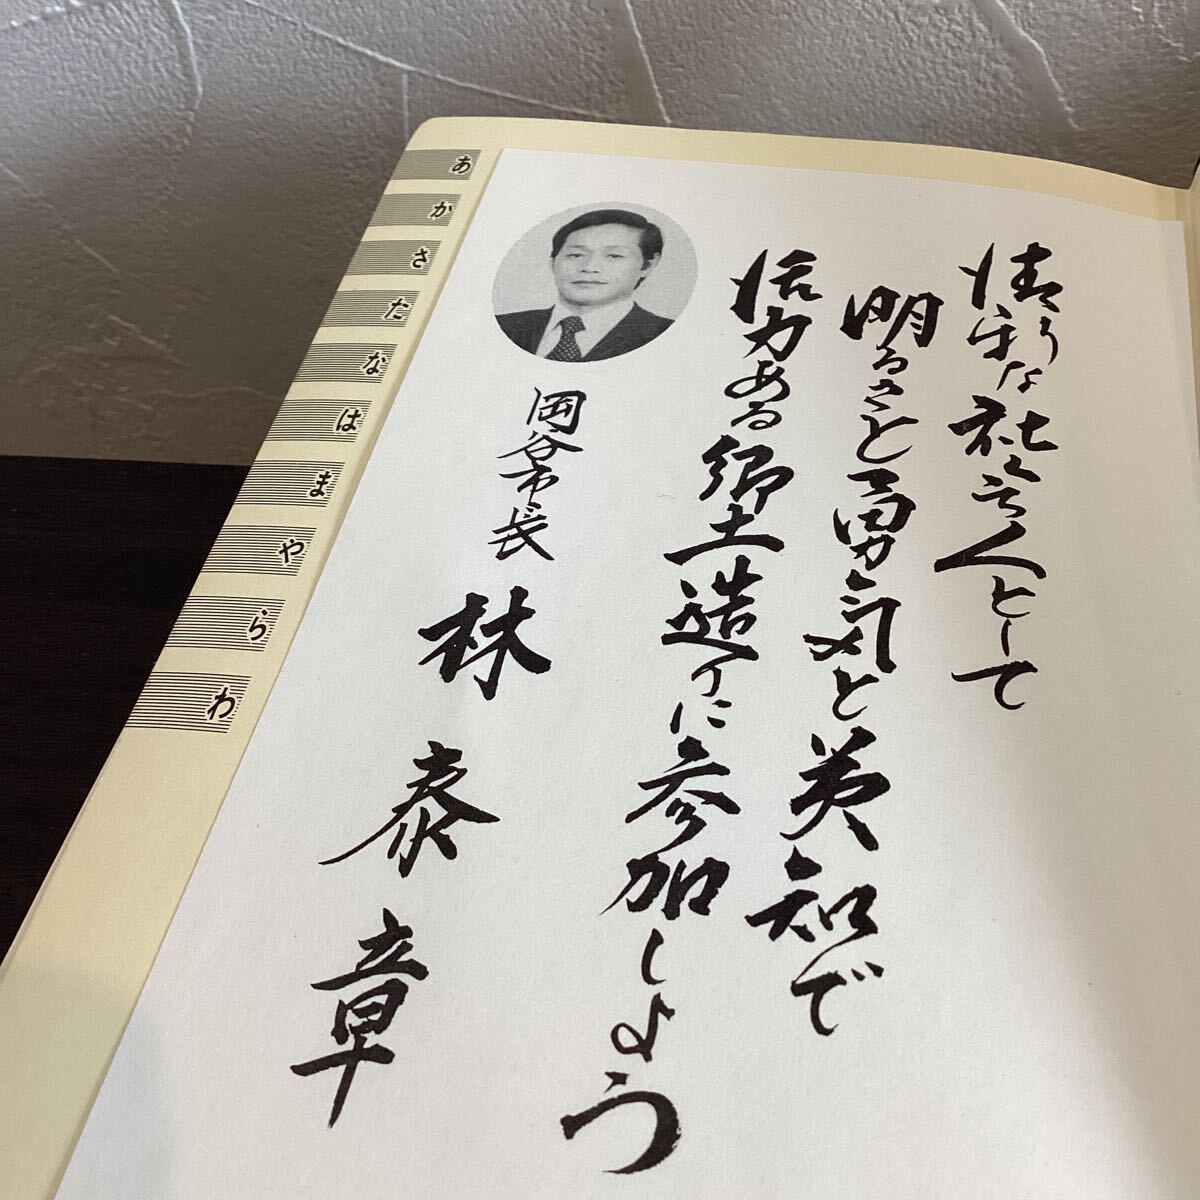 な社会人として
明るさと勇気と英知で
活力ある郷土造りに参加しよう
岡谷市長
林泰章
あ
か
さ
た
な
は
ま
や
ら
わ